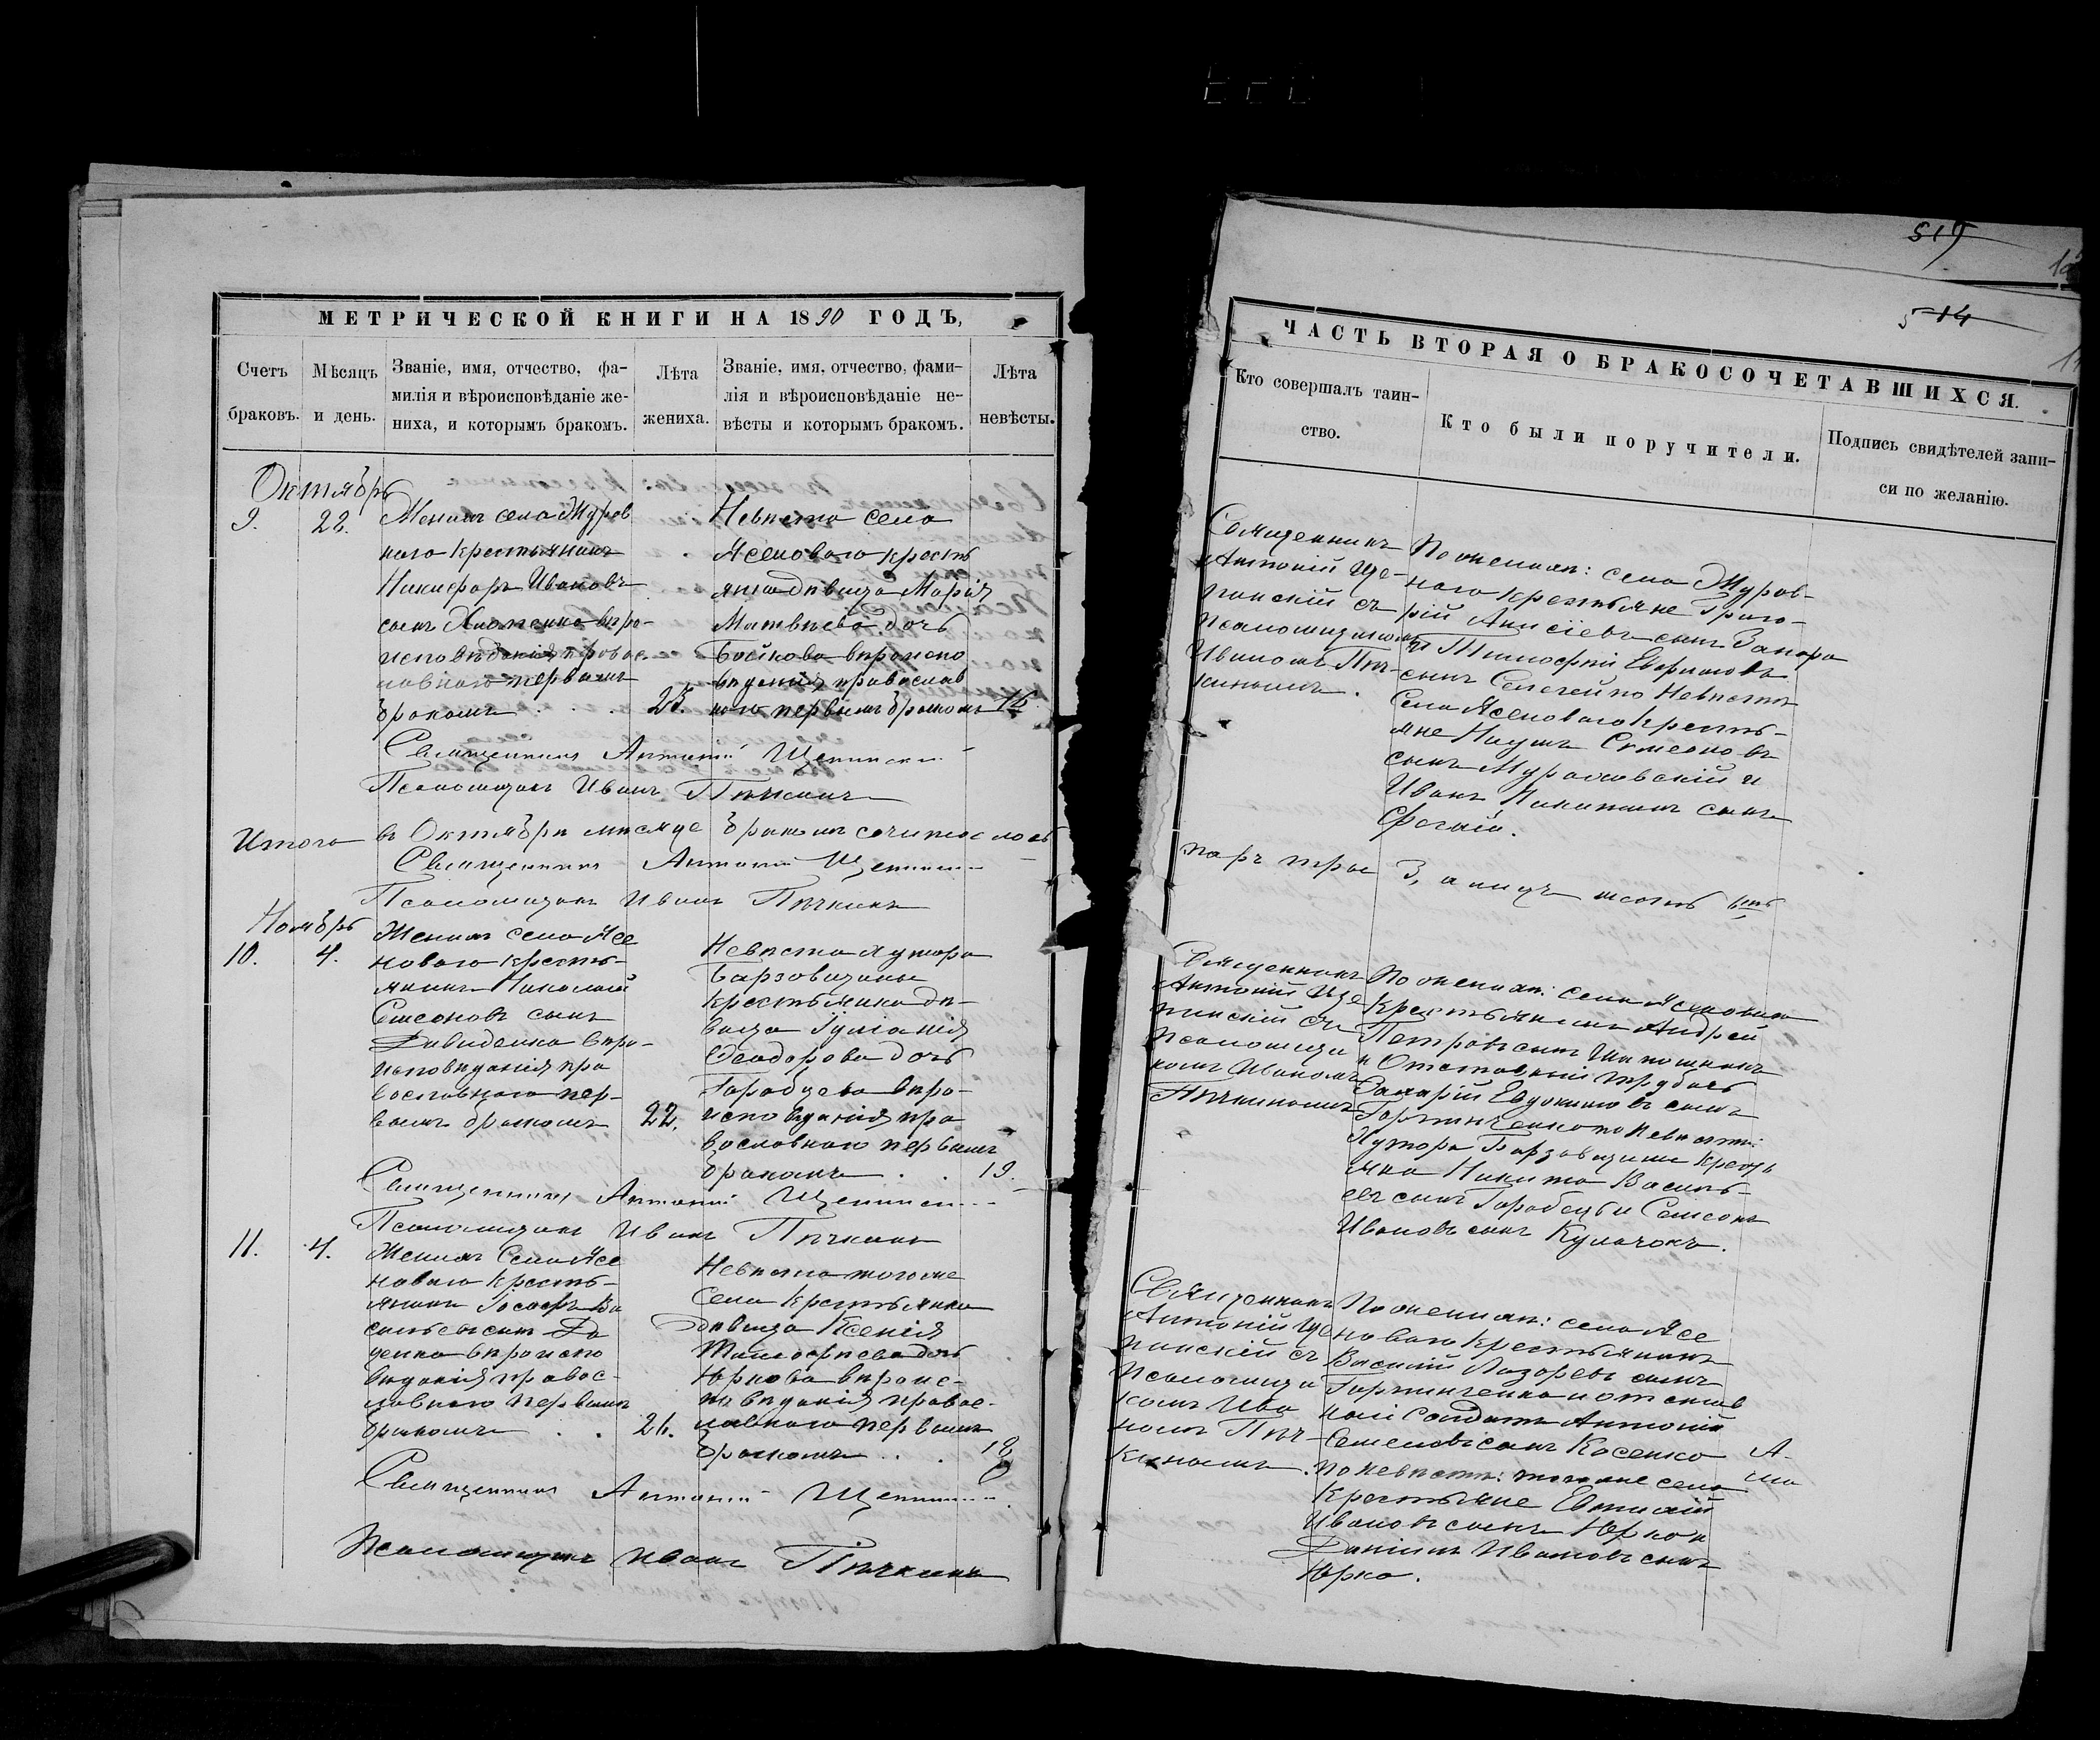 МЕТРИЧЕСКОЙ КНИГИ НА 1890 ГОДЪ,
Счетъ браковъ.
Мѣсяцъ и день.
Званіе, имя, отчество, фа-
милія и вѣроисповѣданіе же-
ниха, и которымъ бракомъ.
Лѣта жениха.
Званіе, имя, отчество, фами-
лія и вѣроисповѣданіе не-
вѣсты и которымъ бракомъ.
Лѣта невѣсты.
Октябрь
9.
22.
Женихъ села Журав
наго крестьянинъ
Никифоръ Ивановъ
сынъ веро-
исповѣданія правос-
лавнаго первымъ
бракомъ
23.
Невѣста села
Ясеноваго кресть
янка девица Марія
Матвѣева дочь
Бойкова вероиспо
вѣданія православ
наго первымъ бракомъ
Священникъ Антоній Щепинскій
Псаломщикъ Иванъ Пѣчкинъ
Итого въ Октябрѣ мѣсяце бракомъ сочиталось
Священникъ Антоній Щепинскій
Псаломщикъ Иванъ Пѣчкинъ
Ноябрь
10.
4.
Женихъ села Ясе
новаго кресть-
янинъ Николай
Симеоновъ сынъ
Давиденко веро-
исповѣданія пра
вославнаго пер-
вымъ бракомъ
22.
Невѣста хутора
Барзовщины
крестьянка дѣ-
вица Іуліанія
Феодорова дочь
Горобцева веро-
исповѣданія пра
вославнаго первымъ
бракомъ
19.
Священникъ Антоній Щепинскій
Псаломщикъ Иванъ Пѣчкинъ
11.
4.
Женихъ села Ясе
новаго кресть-
янинъ Іосифъ Ва
сильевъ сынъ Да
ценко вероиспо
вѣданія правос-
лавнаго первымъ
бракомъ
26.
Невѣста того же
села крестьянка
дѣвица Ксенія
Тимофѣева дочь
Юркова вероис-
повѣданія правос-
лавнаго первымъ
бракомъ
18
Священникъ Антоній Щепинскій
Псаломщикъ Иванъ Пѣчкинъ
519
514
ЧАСТЬ ВТОРАЯ О БРАКОСОЧЕТАВШИХСЯ.
Кто совершалъ таин-
ство.
Кто были поручители.
Подпись свидѣтелей запи-
си по желанію.
Священникъ
Антоній Ще-
пинскій съ
псаломщикомъ
Иваномъ Пѣч-
кинымъ.
По женихѣ: села Журав-
наго крестьяне Григо-
рій Анисіевъ сынъ
и Тимофей
сынъ по невѣсте
села Ясеноваго кресть-
яне Наумъ Симеоновъ
сынъ Мурашовскій и
Иванъ Никитинъ сынъ
паръ три 3, а лицъ шесть
Священникъ
Антоній Ще
пинскій съ
псаломщи
комъ Иваномъ
Пѣчкинымъ
По женихѣ: села Ясеноваго
крестьянинъ Андрей
Петровъ сынъ
и отставной трубачь
Захарій Евдокимовъ сынъ
Гортинченко по невѣсте:
хутора Барзовщины кресть
яне Никита Василь-
евъ сынъ Горобецъ и Симеонъ
Ивановъ сынъ Кулачокъ.
Священникъ
Антоній Ще
пинскій съ
псаломщи
комъ Ива
номъ Пѣч-
кинымъ.
По женихѣ: села Ясе
новаго крестьянинъ
Василій Лазоревъ сынъ
Гортинченко и отстав
ной солдатъ Антоній
Семеновъ сынъ Косенко
по невѣсте: того же села
крестьяне Евтихій
Ивановъ сынъ Юрко и
Даніилъ Ивановъ сынъ
Юрко.